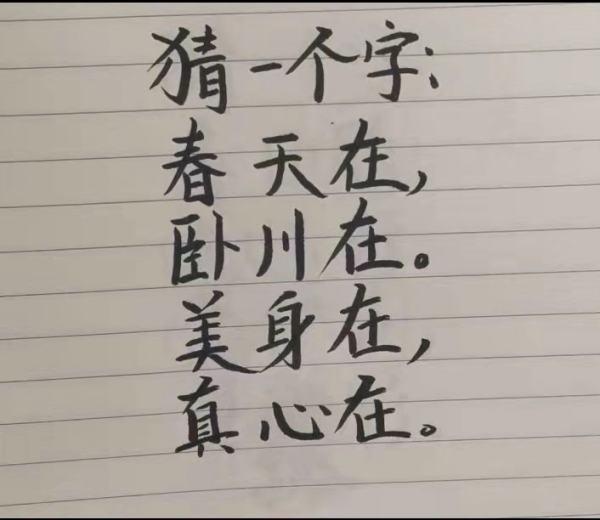 猜一个字:
春天在,
卧川在。
美身在,
真心在。